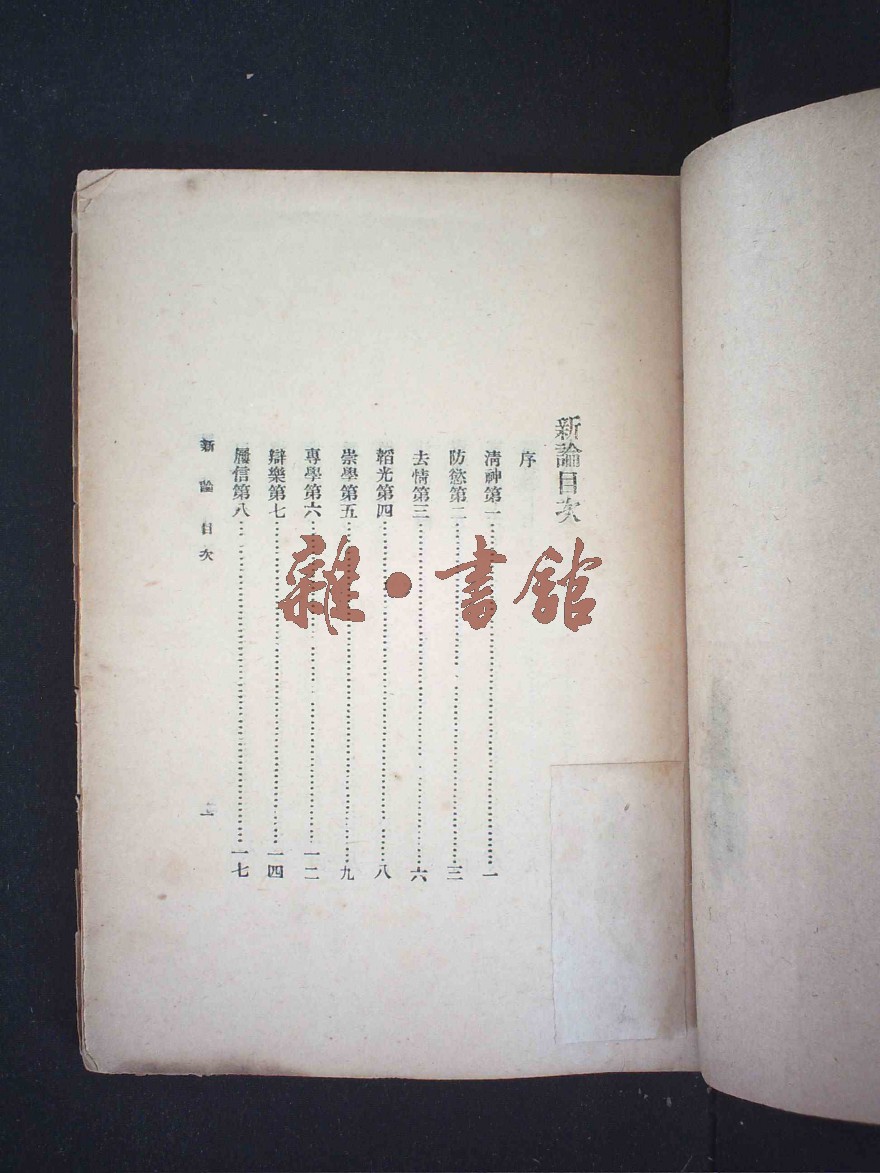 新論目次
序
淸神第一……一
防慾第二……三
去情第三……六
韜光第四……八
崇學第五……九
專學第六……一二
辯樂第七……一四
履信第八……一七
新論目次
一
雜·書館